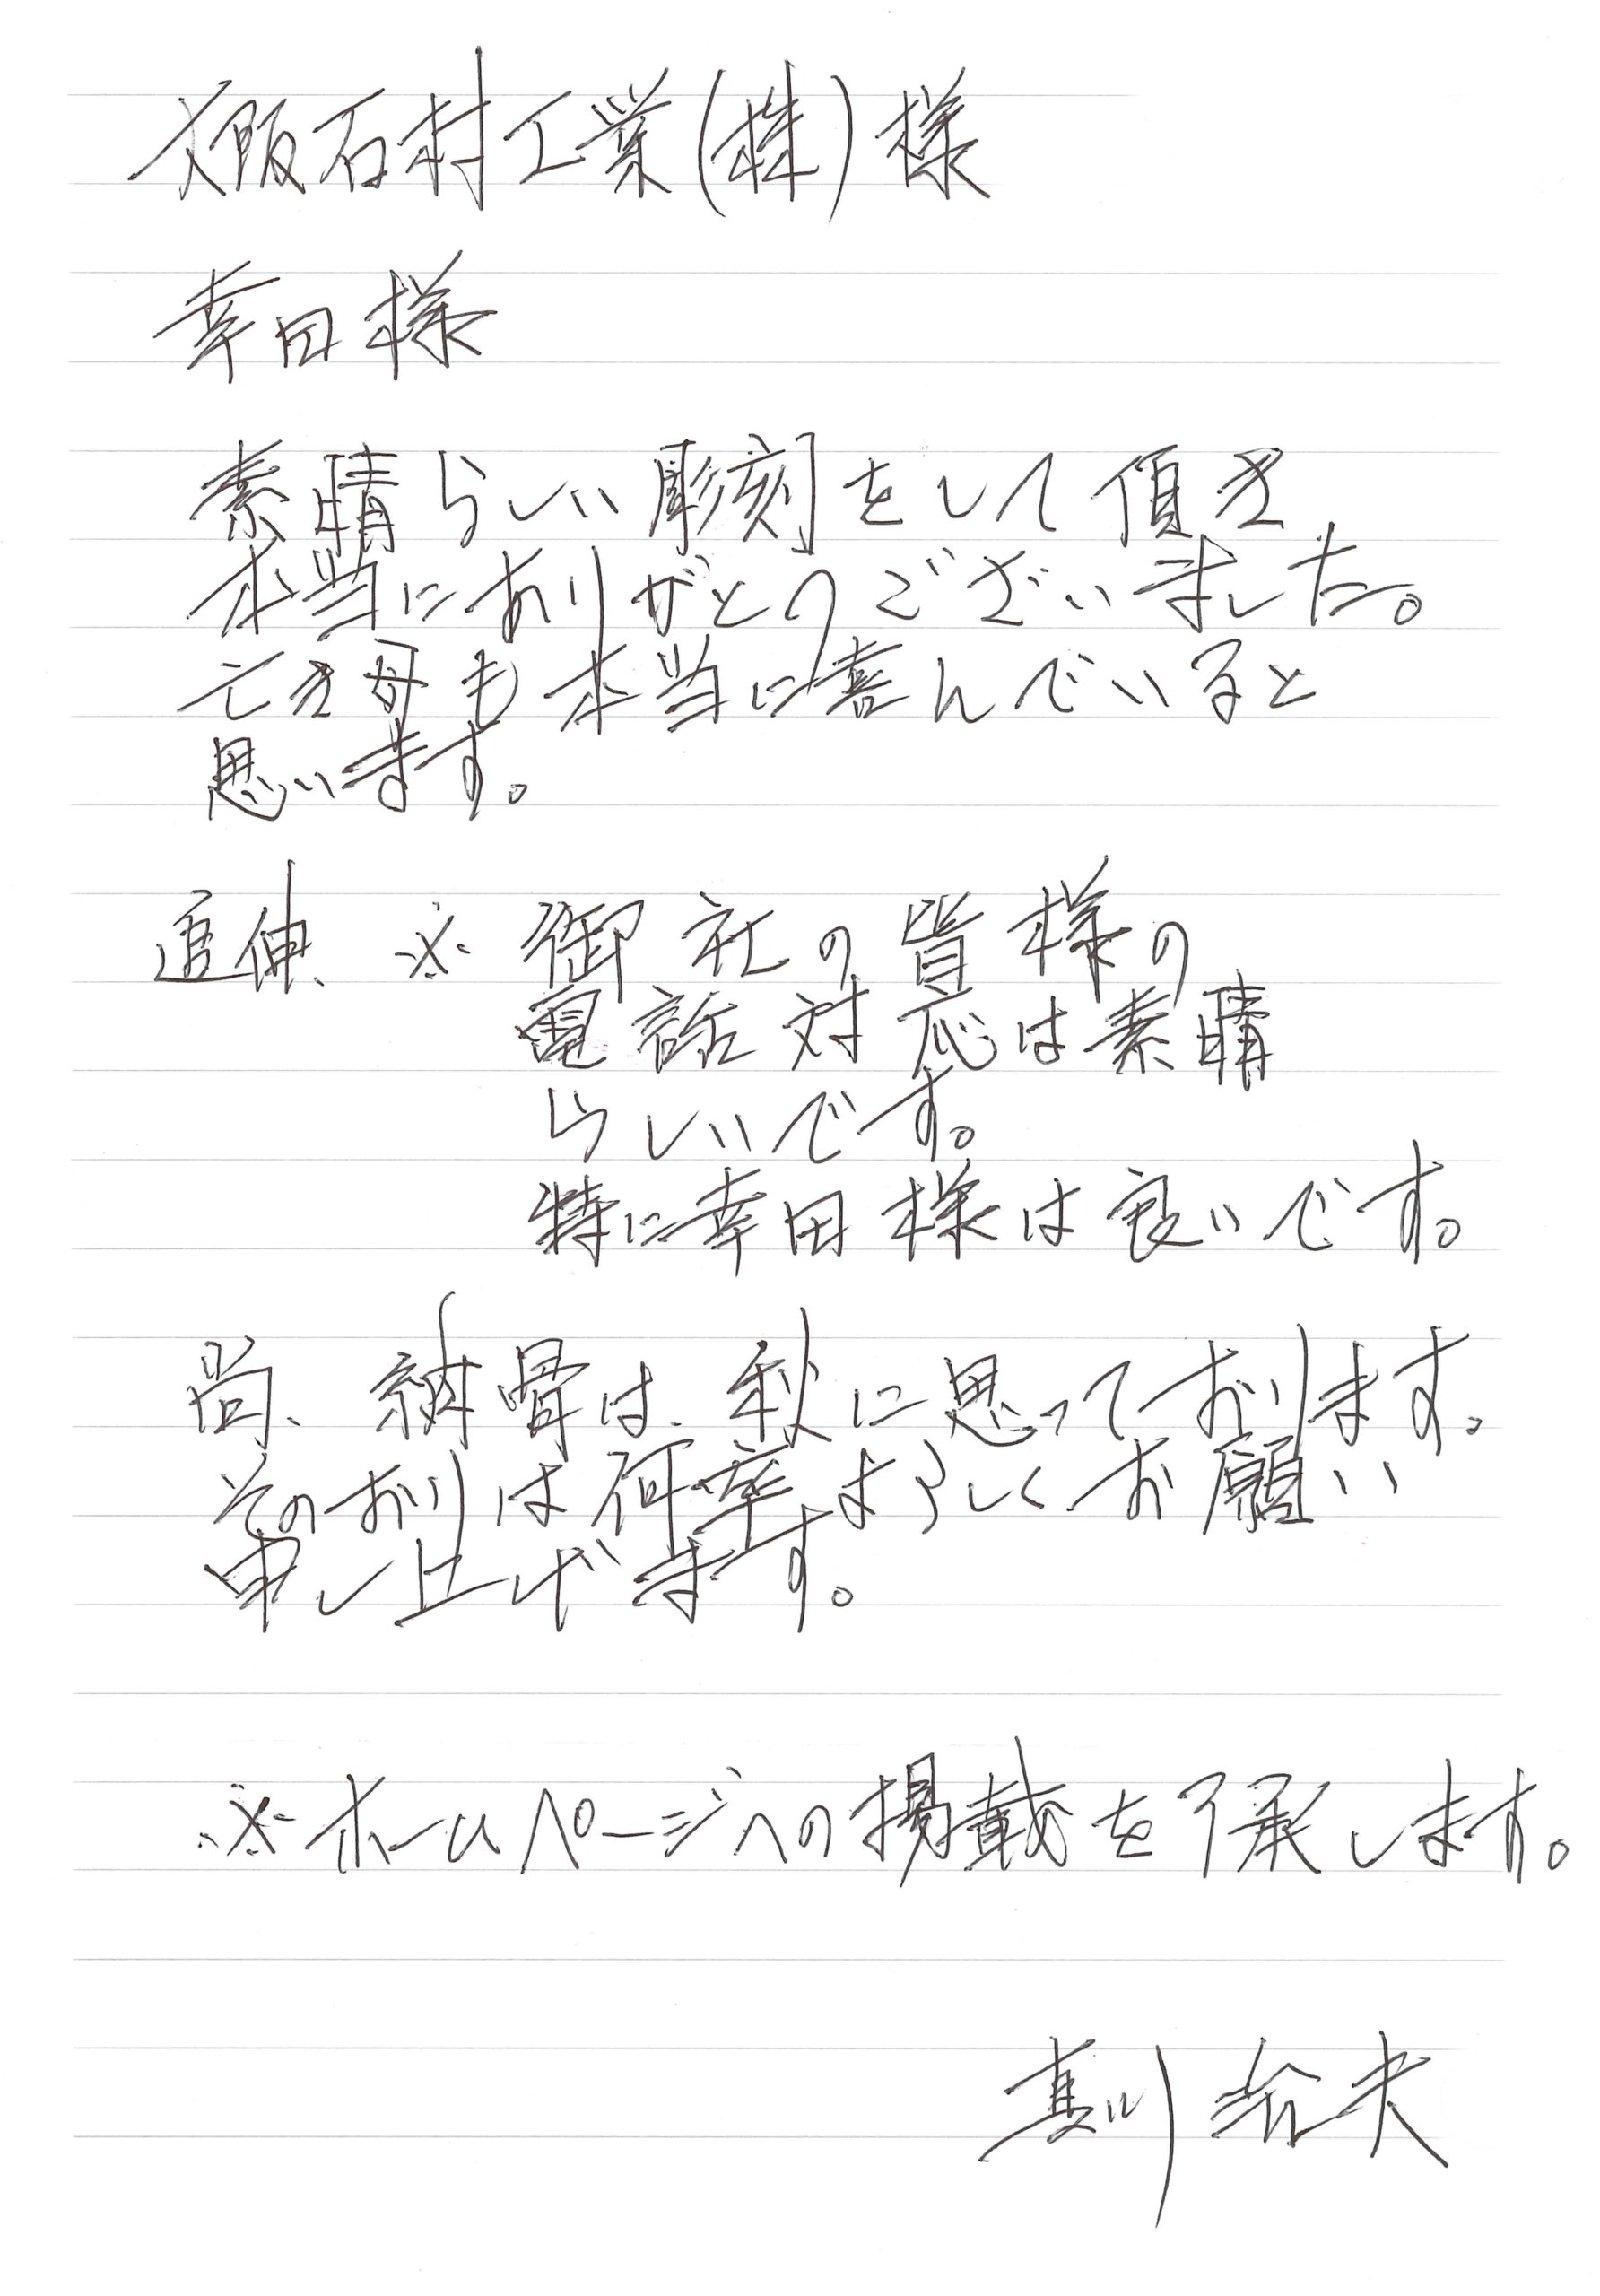 大阪石材工業(株)様
幸田様
素晴らしい彫刻をして頂き
本当にありがとうございました。
亡き母も本当に喜んでいると
思います。
追伸、※御社の皆様の
電話対応は素晴
らしいです。
特に幸田様は良いです。
尚、納骨は、秋に思っております。
そのおりは何卒よろしくお願い
申し上げます。
※ホームページへの掲載を了承します。
真川 夫